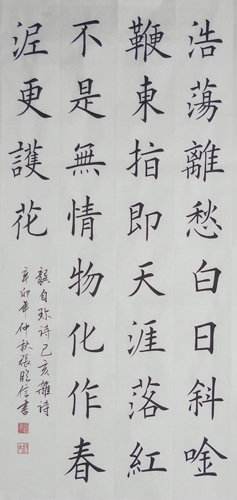 浩蕩離愁白日斜唫
鞭東指即天涯落紅
不是無情物化作春
泥更護花
龔自珍诗己亥雜诗
辛卯年仲秋張明信書